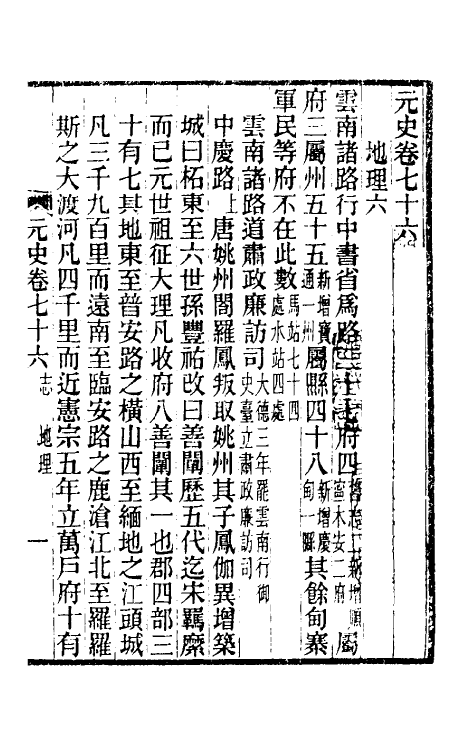 元史卷七十六
地理六
雲南諸路行中書省爲路府四屬
府三屬州五十五新增寶通一州屬縣四十八新增慶甸一縣其餘甸寨
軍民等府不在此數馬站七十四處水站四處
雲南諸路道肅政廉訪司大德三年罷雲南行御史臺立肅政廉訪司
中慶路上唐姚州閣羅鳳叛取姚州其子鳳伽異增築
城曰柘東至六世孫豐祐改曰善闡歷五代迄宋羈縻
而已元世祖征大理凡收府八善闡其一也郡四部三
十有七其地東至普安路之橫山西至緬地之江頭城
凡三千九百里而遠南至臨安路之鹿滄江北至羅羅
斯之大渡河凡四千里而近憲宗五年立萬戶府十有
元史卷七十六 志 地理 一